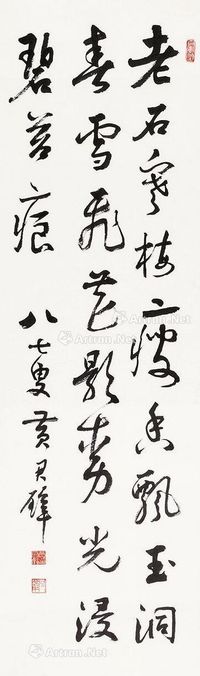 老石寒梅瘦香飄玉洞
春雪飛花影動光浸
碧苔痕
八七叟黃君璧
Artron.Net
Artron.Net
Artron.Net